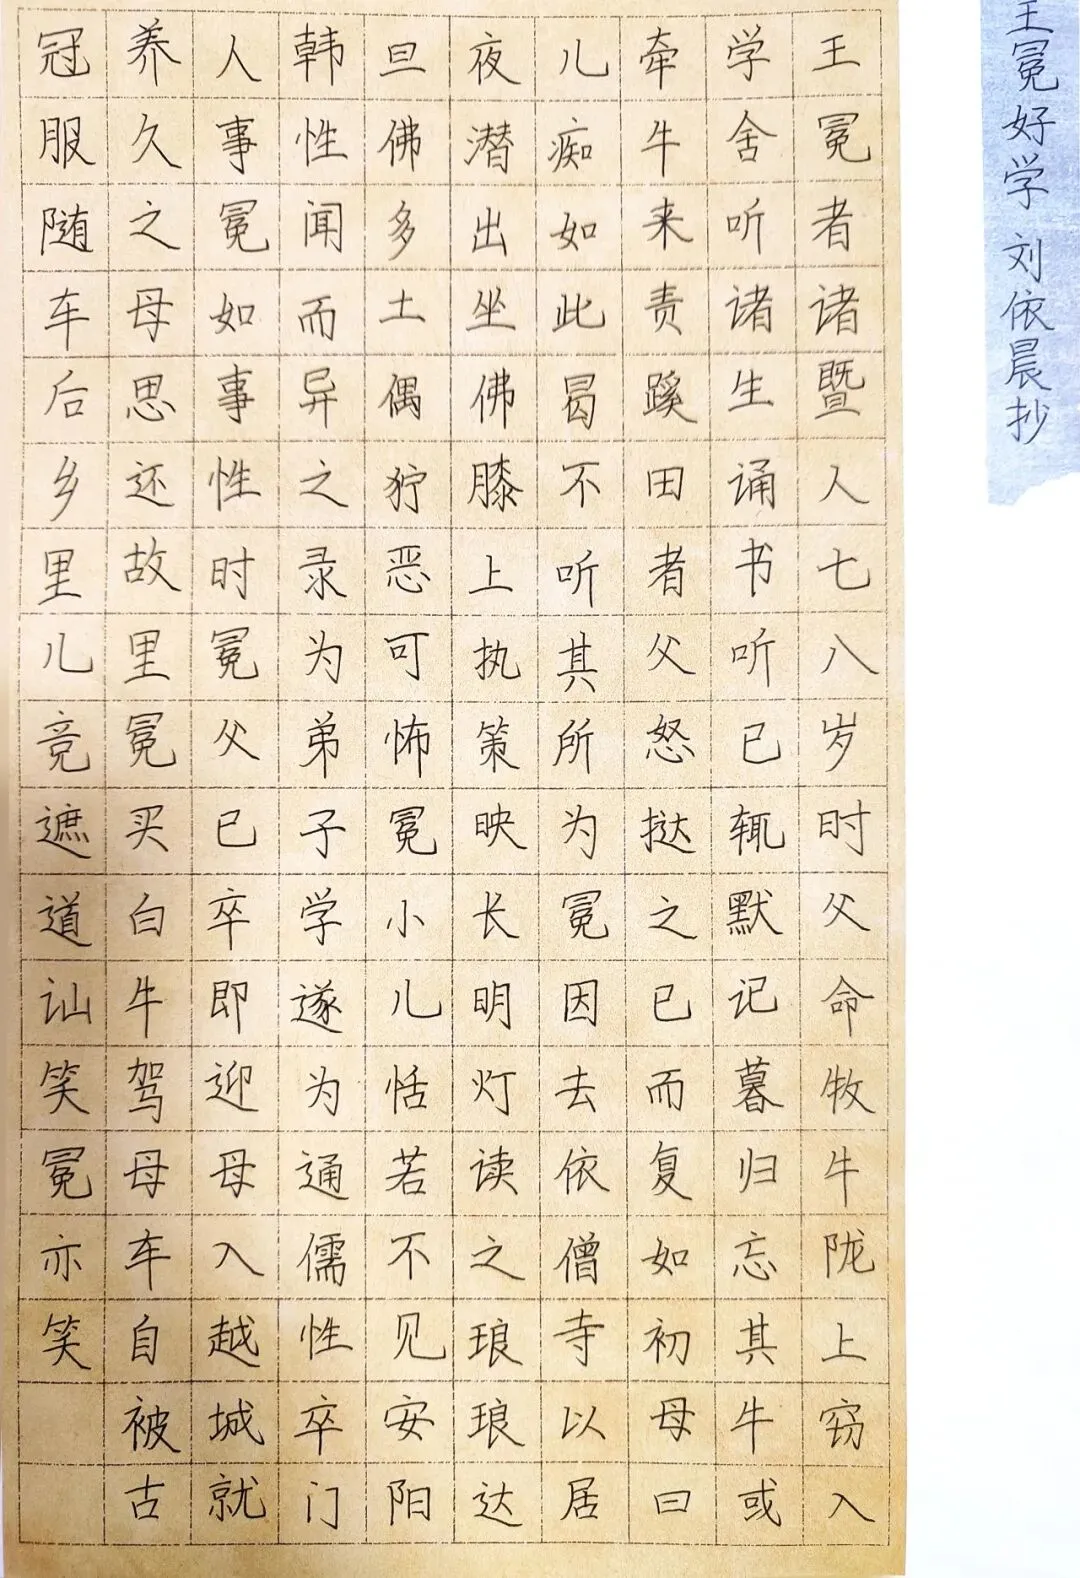 王冕好学 刘依晨抄
王冕者诸暨人七八岁时父命牧牛陇上窃入
学舍听诸生诵书听已辄默记暮归忘其牛或
牵牛来责蹊田者父怒挞之已而复如初母曰
儿痴如此曷不听其所为冕因去依僧寺以居
夜潜出坐佛膝上执策映长明灯读之琅琅达
旦佛多土偶狞恶可怖冕小儿恬若不见安阳
韩性闻而异之录为弟子学遂为通儒性卒门
人事冕如事性时冕父已卒即迎母入越城就
养久之母思还故里冕买白牛驾母车自被古
冠服随车后乡里儿竞遮道讪笑冕亦笑